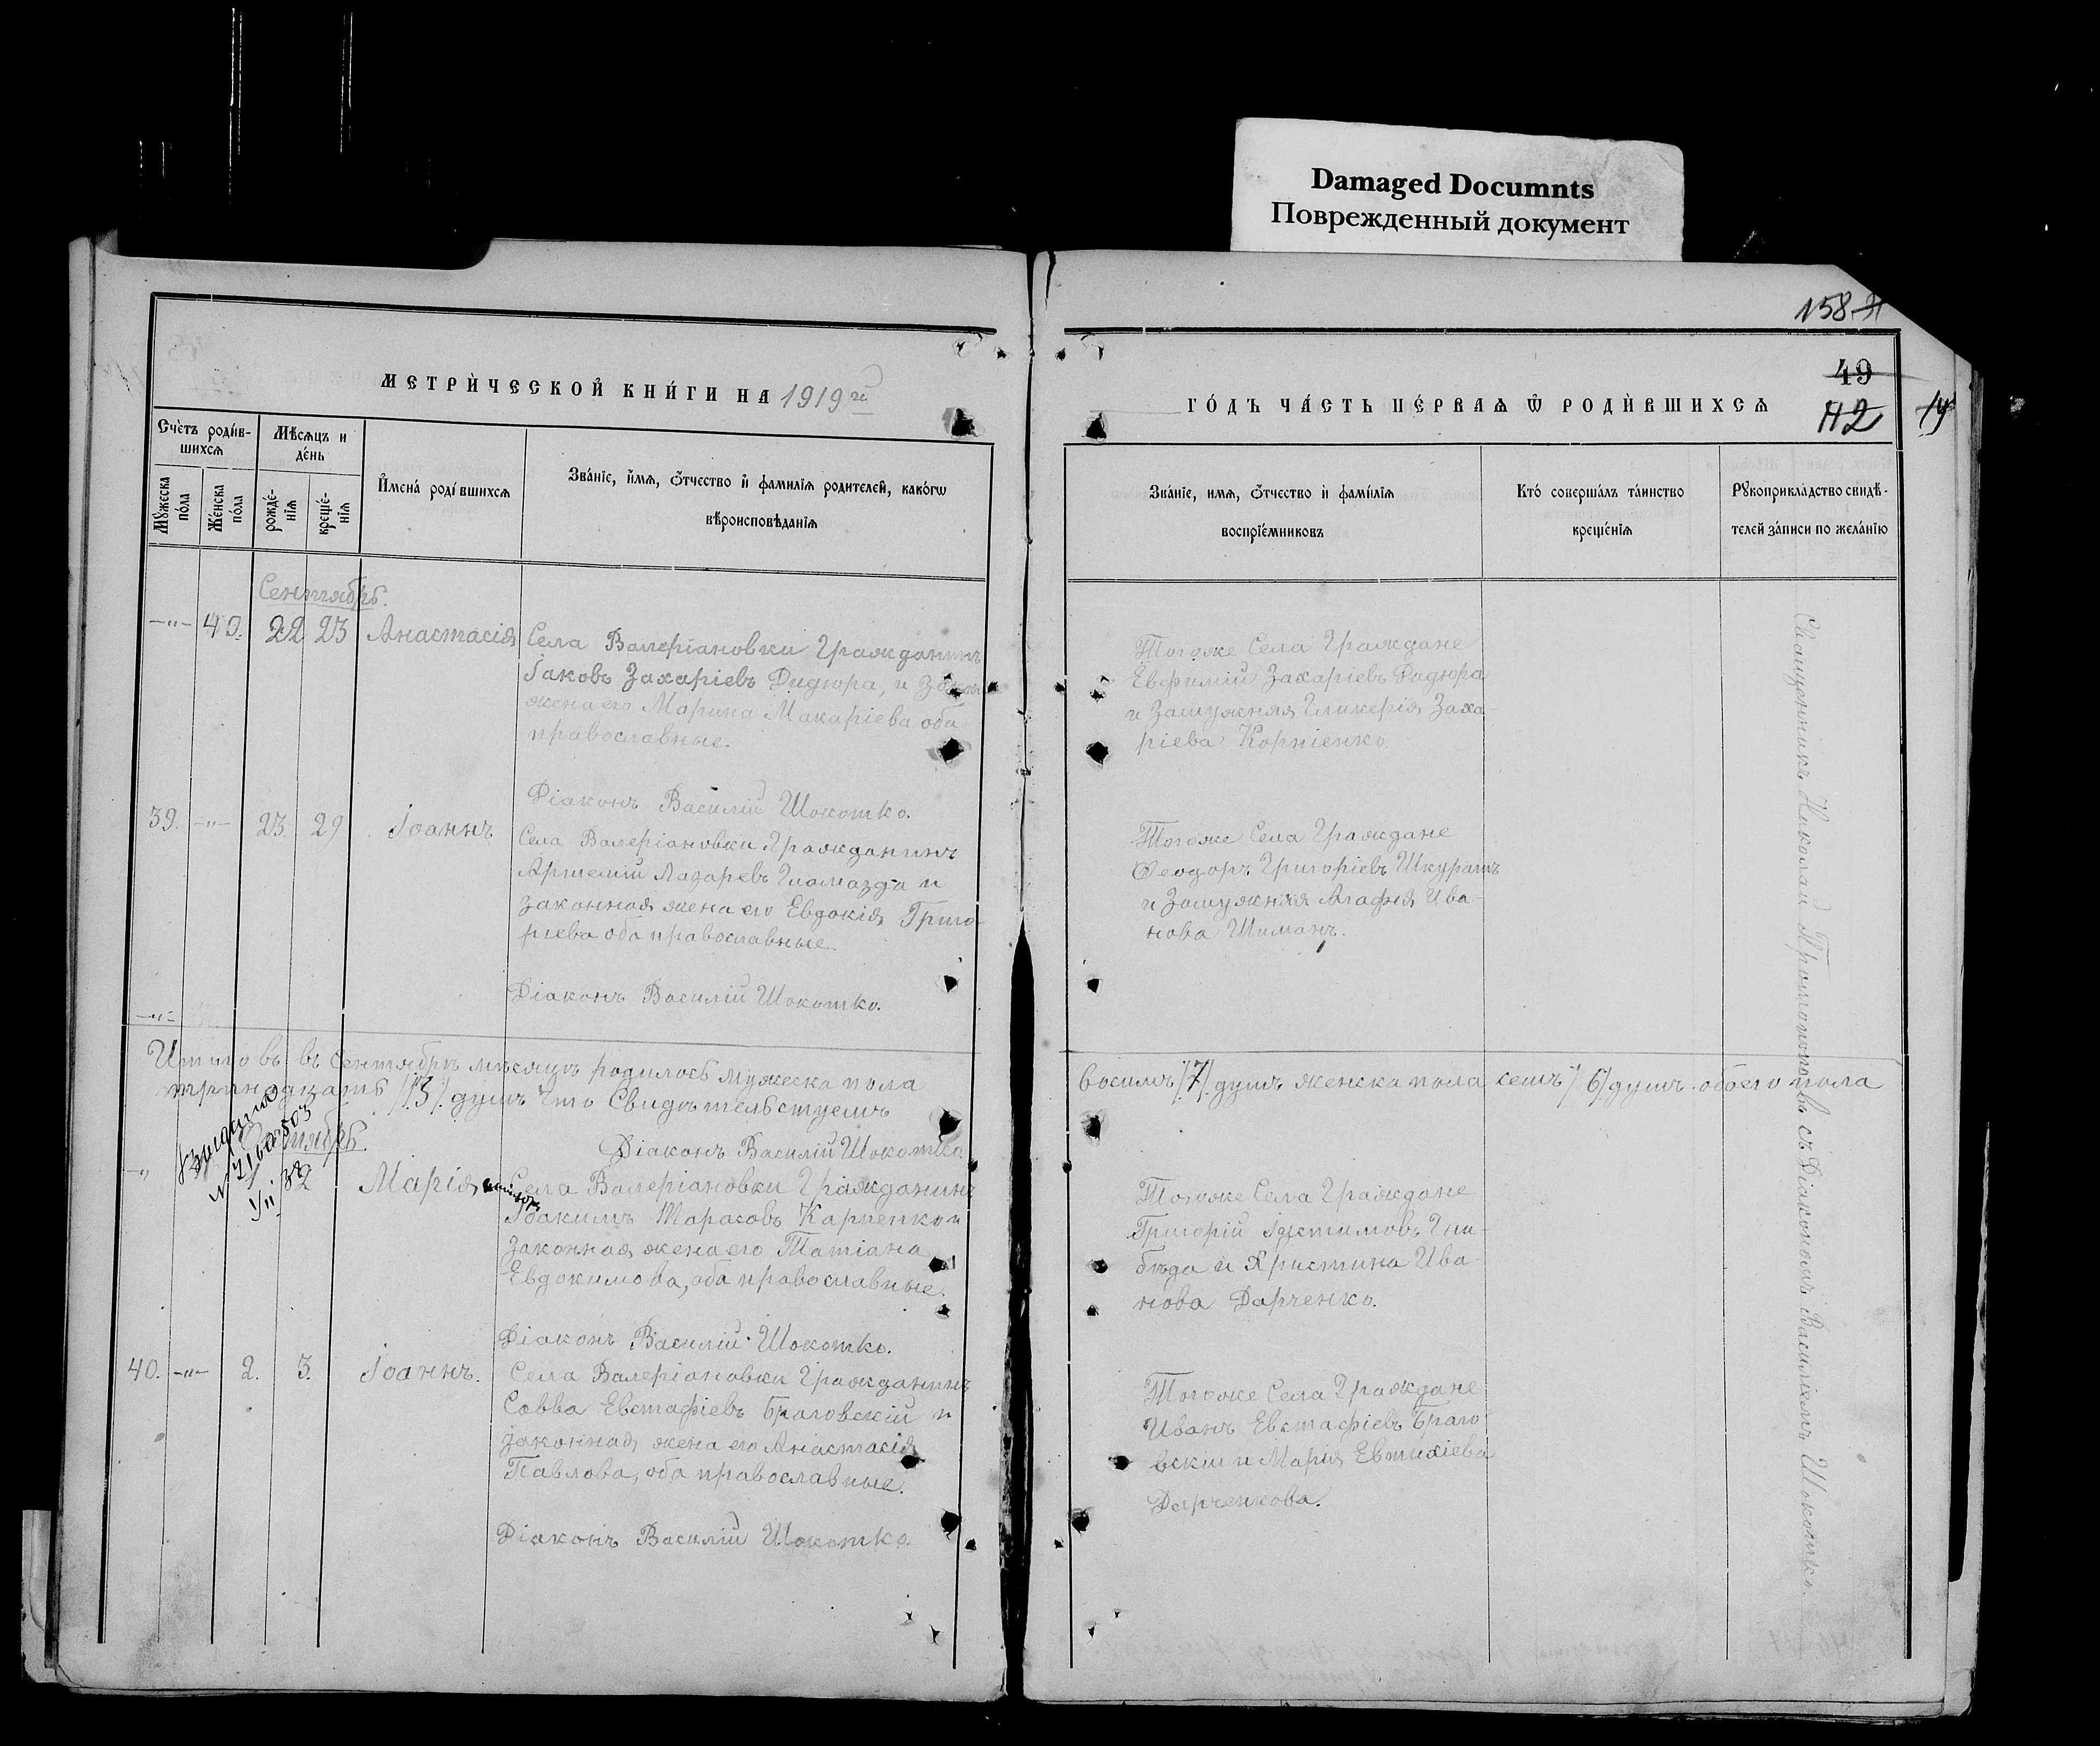 Damaged Documnts
Поврежденный документ
158
49
112
МЕТРИЧЕСКОЙ КНИГИ НА 1919й
ГОДЪ ЧАСТЬ ПЕРВАЯ Ѿ РОДИВШИХСЯ
Счетъ родив-
шихся
Мѣсяцъ и
день
Мужеска
пола
Женска
пола
рожде-
нія
креще-
нія
Имена родившихся
Званіе, имя, ѻтчество и фамилія родителей, какогѡ
вѣроисповѣданія
Званіе, имя, ѻтчество и фамилія
воспріемниковъ
Кто совершалъ таинство
крещенія
Рукоприкладство свидѣ-
телей записи по желанію
Сентябрь.
-"- 40. 22 23 Анастасія
Села Валеріановки Гражданинъ
Іаковъ Захаріевъ Дидюра, и
жена его Марина Макаріева оба
православные.
Діаконъ Василій Шокотко.
Тогоже Села Граждане
Евфимій Захаріевъ Дидюра
и Замужняя Гликерія Заха-
ріева Корніенко
39. -"- 23. 29 Іоаннъ
Села Валеріановки Гражданинъ
Артемій Лазаревъ Гломазда и
законная жена его Евдокія Григо-
рiева оба православные.
Діаконъ Василій Шокотко.
Тогоже Села Граждане
Ѳеодоръ Григоріевъ Шкуратъ
и Замужняя Агафія Ива-
нова Шиманъ.
-"-
Итого въ въ Сентябрѣ мѣсяцѣ родилось мужеска пола
восимъ /7/ душъ женска пола семъ /6/ душъ обоего пола
тринадцать /13/ душъ Что Свидѣтельствуемъ
Діаконъ Василій Шокотко.
Октябрь.
Марія
Села Валеріановки Гражданинъ
Іоакимъ Тарасовъ Карпенко и
Законная жена его Татіана
Евдокимова, оба православные.
Діаконъ Василій Шокотко.
Тогоже Села Граждане
Григорій Іустимовъ Гни-
бѣда и Христина Ива-
нова Дарченко.
40. -"- 2. 3. Іоаннъ.
Села Валеріановки Гражданинъ
Савва Евстафіевъ Браговскій и
законная жена его Анастасія
Павлова, оба православные.
Діаконъ Василій Шокотко.
Тогоже Села Граждане
Иванъ Евстафіевъ Браго-
вскій и Марія Евтихіева
Дарченкова.
Священникъ Николай Протопоповъ съ Діакономъ Василіемъ Шокотко.